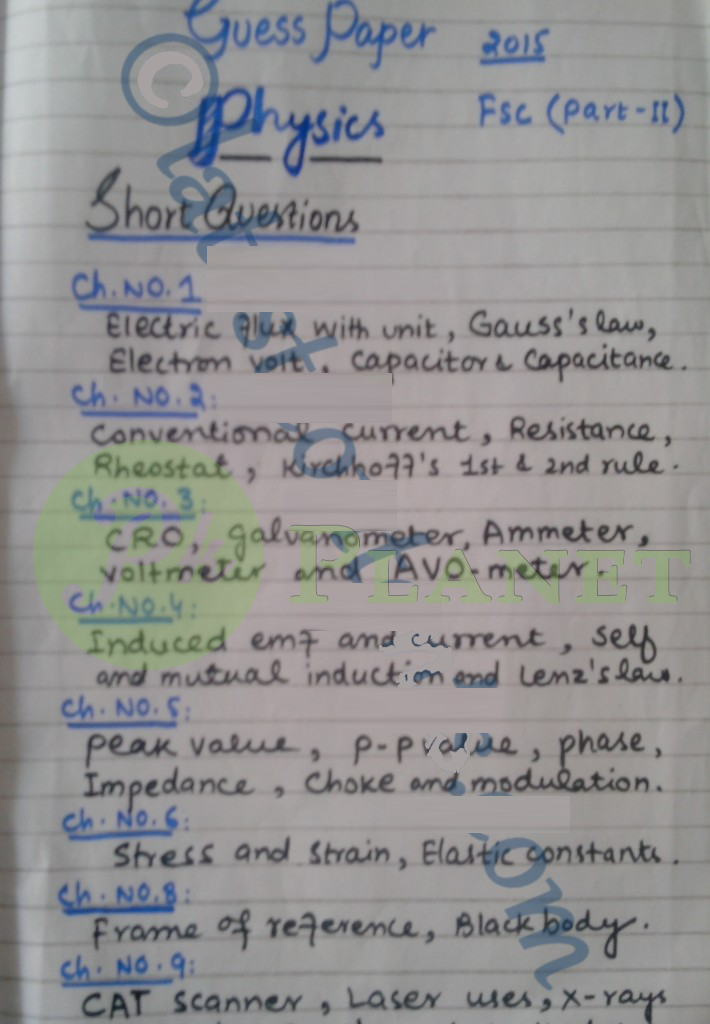 Guess Paper 2015
Physics FSc (Part-II)
Short Questions
Ch. NO. 1
Electric flux with unit, Gauss's law,
Electron volt. Capacitor & Capacitance.
Ch. NO. 2:
Conventional current, Resistance,
Rheostat, Kirchhoff's 1st & 2nd rule.
Ch. NO. 3:
CRO, galvanometer, Ammeter,
voltmeter and AVO-meter.
PLANET
Ch. NO. 4:
Induced emf and current, self
and mutual induction and Lenz's law.
Ch. NO. 5:
peak value, p-p value, phase,
Impedance, Choke and modulation.
Ch. NO. 6:
Stress and Strain, Elastic constants.
Ch. NO. 8:
Frame of reference, Black body.
Ch. NO. 9:
CAT scanner, Laser uses, X-rays